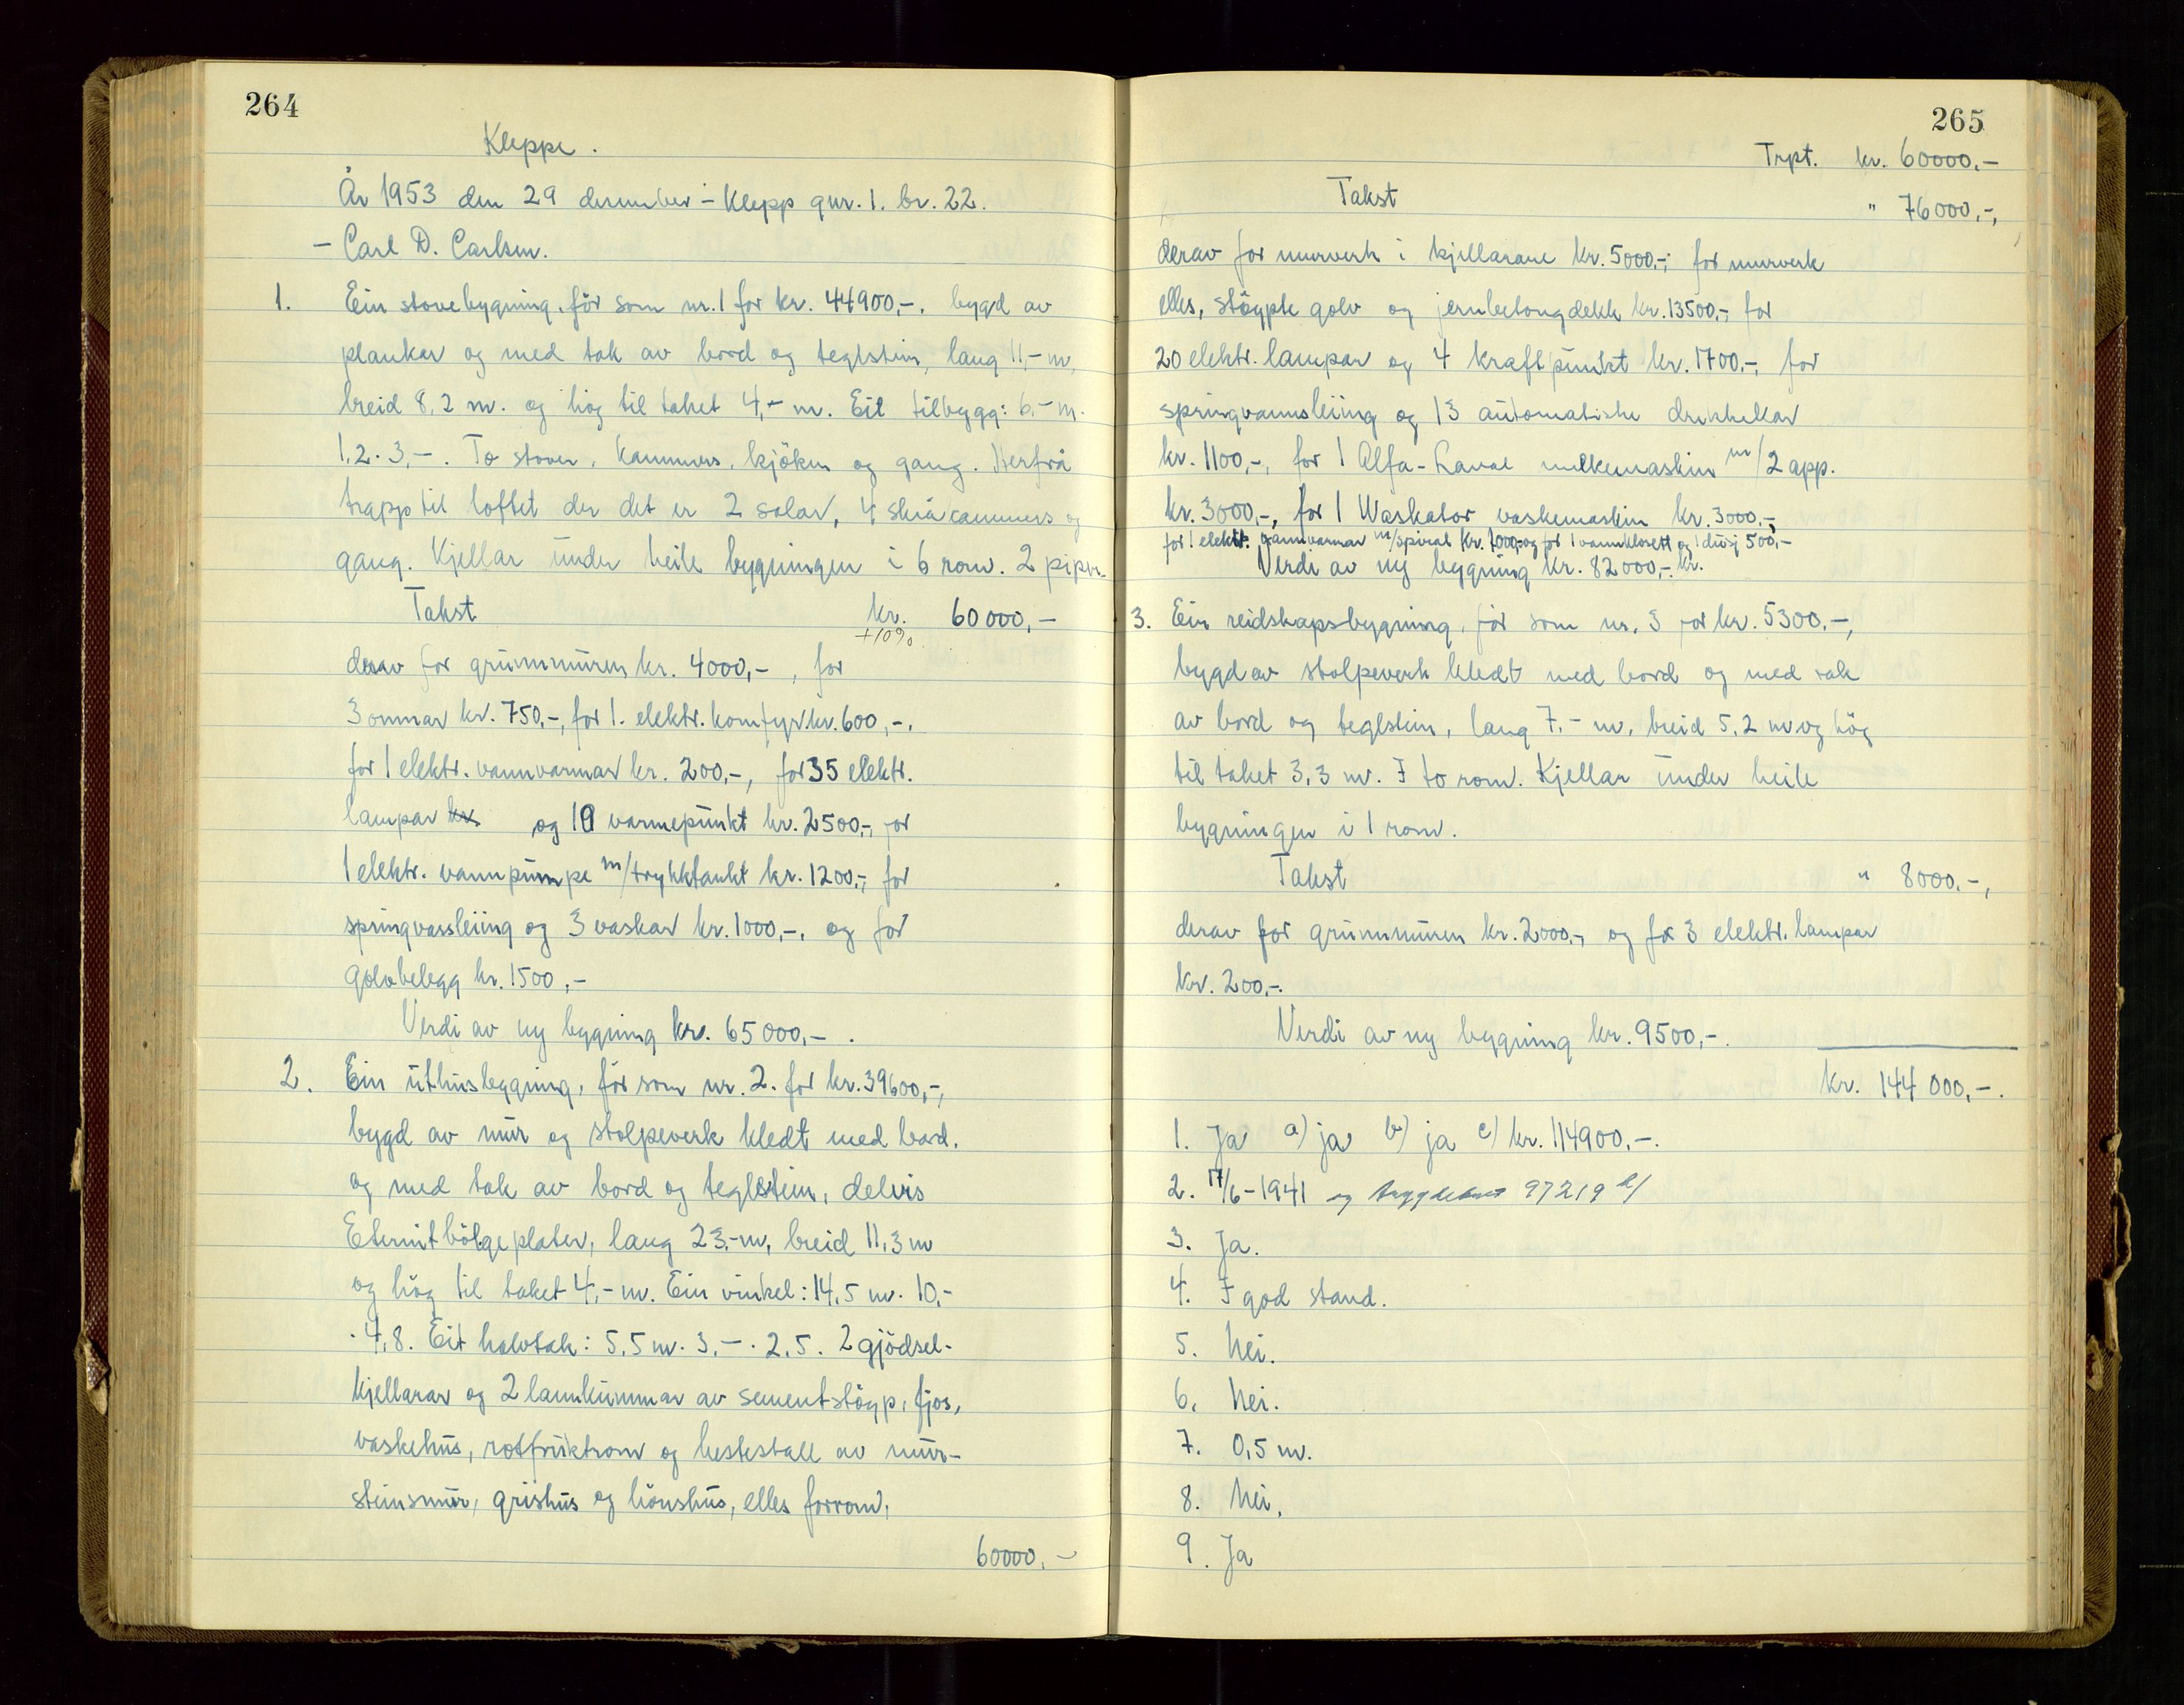 264
Kleppe.
År 1953 den 29 desember – Klepp gnr. 1. br. 22.
– Carl D. Carlsen.
1. Ein stovebygning, før som nr. 1 for kr. 44900,-. bygd av
plankar og med tak av bord og teglstein, lang 11,- m,
breid 8,2 m. og høg til taket 4,- m. Eit tilbygg: 6,- m.
1,2 · 3,-. To stover, kammers, kjøken og gang. Herfrå
trapp til loftet der det er 2 salar, 4 skråkammers og
gang. Kjellar under heile bygningen i 6 rom. 2 piper.
Takst kr. 60000,-
+10%
derav for grunnmuren kr. 4000,-, for
3 omnar kr. 750,-, for 1. elektr. komfyr kr. 600,-.
for 1 elektr. vannvarmar kr. 200,-, for 35 elektr.
lampar kr. og 10 varmepunkt kr. 2500,-, for
1 elektr. vannpumpe m/trykktankt kr. 1200,-, for
springvassleiing og 3 vaskar kr. 1000,-. og for
golvbelegg kr. 1500,-
Verdi av ny bygning kr. 65000,-.
2. Ein uthusbygning, før som nr. 2. for kr. 39600,-,
bygd av mur og stolpeverk kledt med bord.
og med tak av bord og teglstein, delvis
Eternitbølgeplater, lang 23,- m, breid 11,3 m
og høg til taket 4,- m. Ein vinkel: 14,5 m · 10,-
· 4,8. Eit halvtak: 5,5 m · 3,- · 2,5. 2 gjødsel-
kjellarar og 2 lannkummar av sementstøyp, fjos,
vaskehus, rotfruktrom og hestestall av mur-
steinsmur, grishus og hønshus, elles forrom,
60000,-
265
Trpt. kr. 60000,-
Takst " 76000,-,
derav for murverk i kjellarane kr. 5000,-; for murverk
elles, støypte golv og jernbetongdekk kr. 13500,- for
20 elektr. lampar og 4 kraftpunkt kr. 1700,-, for
springvannsleiing og 13 automatiske drikkekar
kr. 1100,-, for 1 Alfa-Laval melkemaskin m/2 app.
kr. 3000,-, for 1 Waskator vaskemaskin kr. 3000,-,
for 1 elektr. vannvarmar m/spiral kr. 1000 og for 1 vannklosett og 1 dusj 500,-
Verdi av ny bygning kr. 82000,-. kr.
3. Ein reidskapsbygning, før som nr. 3 for kr. 5300,-,
bygd av stolpeverk kledt med bord og med tak
av bord og teglstein, lang 7,- m, breid 5,2 m og høg
til taket 3,3 m. I to rom. Kjellar under heile
bygningen i 1 rom.
Takst " 8000,-,
derav for grunnmuren kr. 2000,-, og for 3 elektr. lampar
kr. 200,-.
Verdi av ny bygning kr. 9500,-.
kr. 144 000,-.
1. Ja a) ja b) ja c) kr. 114900,-.
2. 17/6-1941 og 97219
3. Ja.
4. I god stand.
5. Nei.
6. Nei.
7. 0,5 m.
8. Nei.
9. Ja